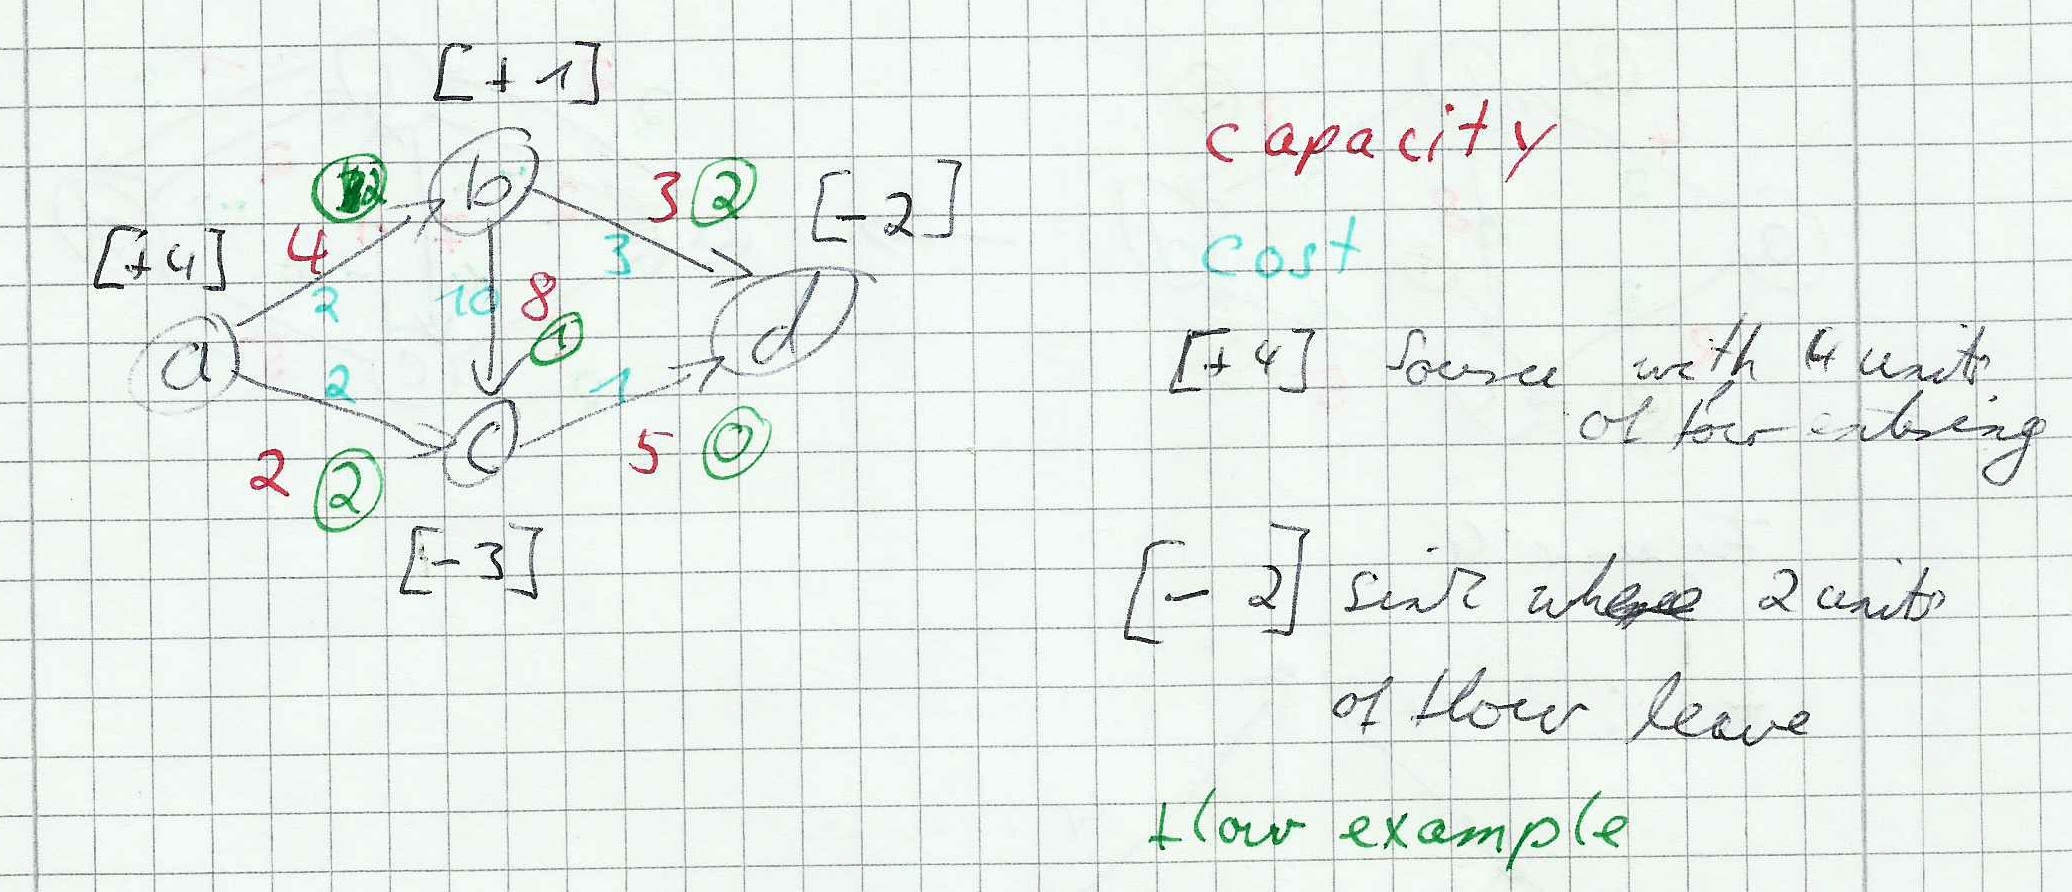 [+1]
b
3 2
[-2]
[+4]
4
2
10
8
3
1
d
a
2
1
c
2 2
5 0
[-3]
capacity
cost
[+4] Source with 4 units
of flow entering
[-2] sink where 2 units
of flow leave
flow example